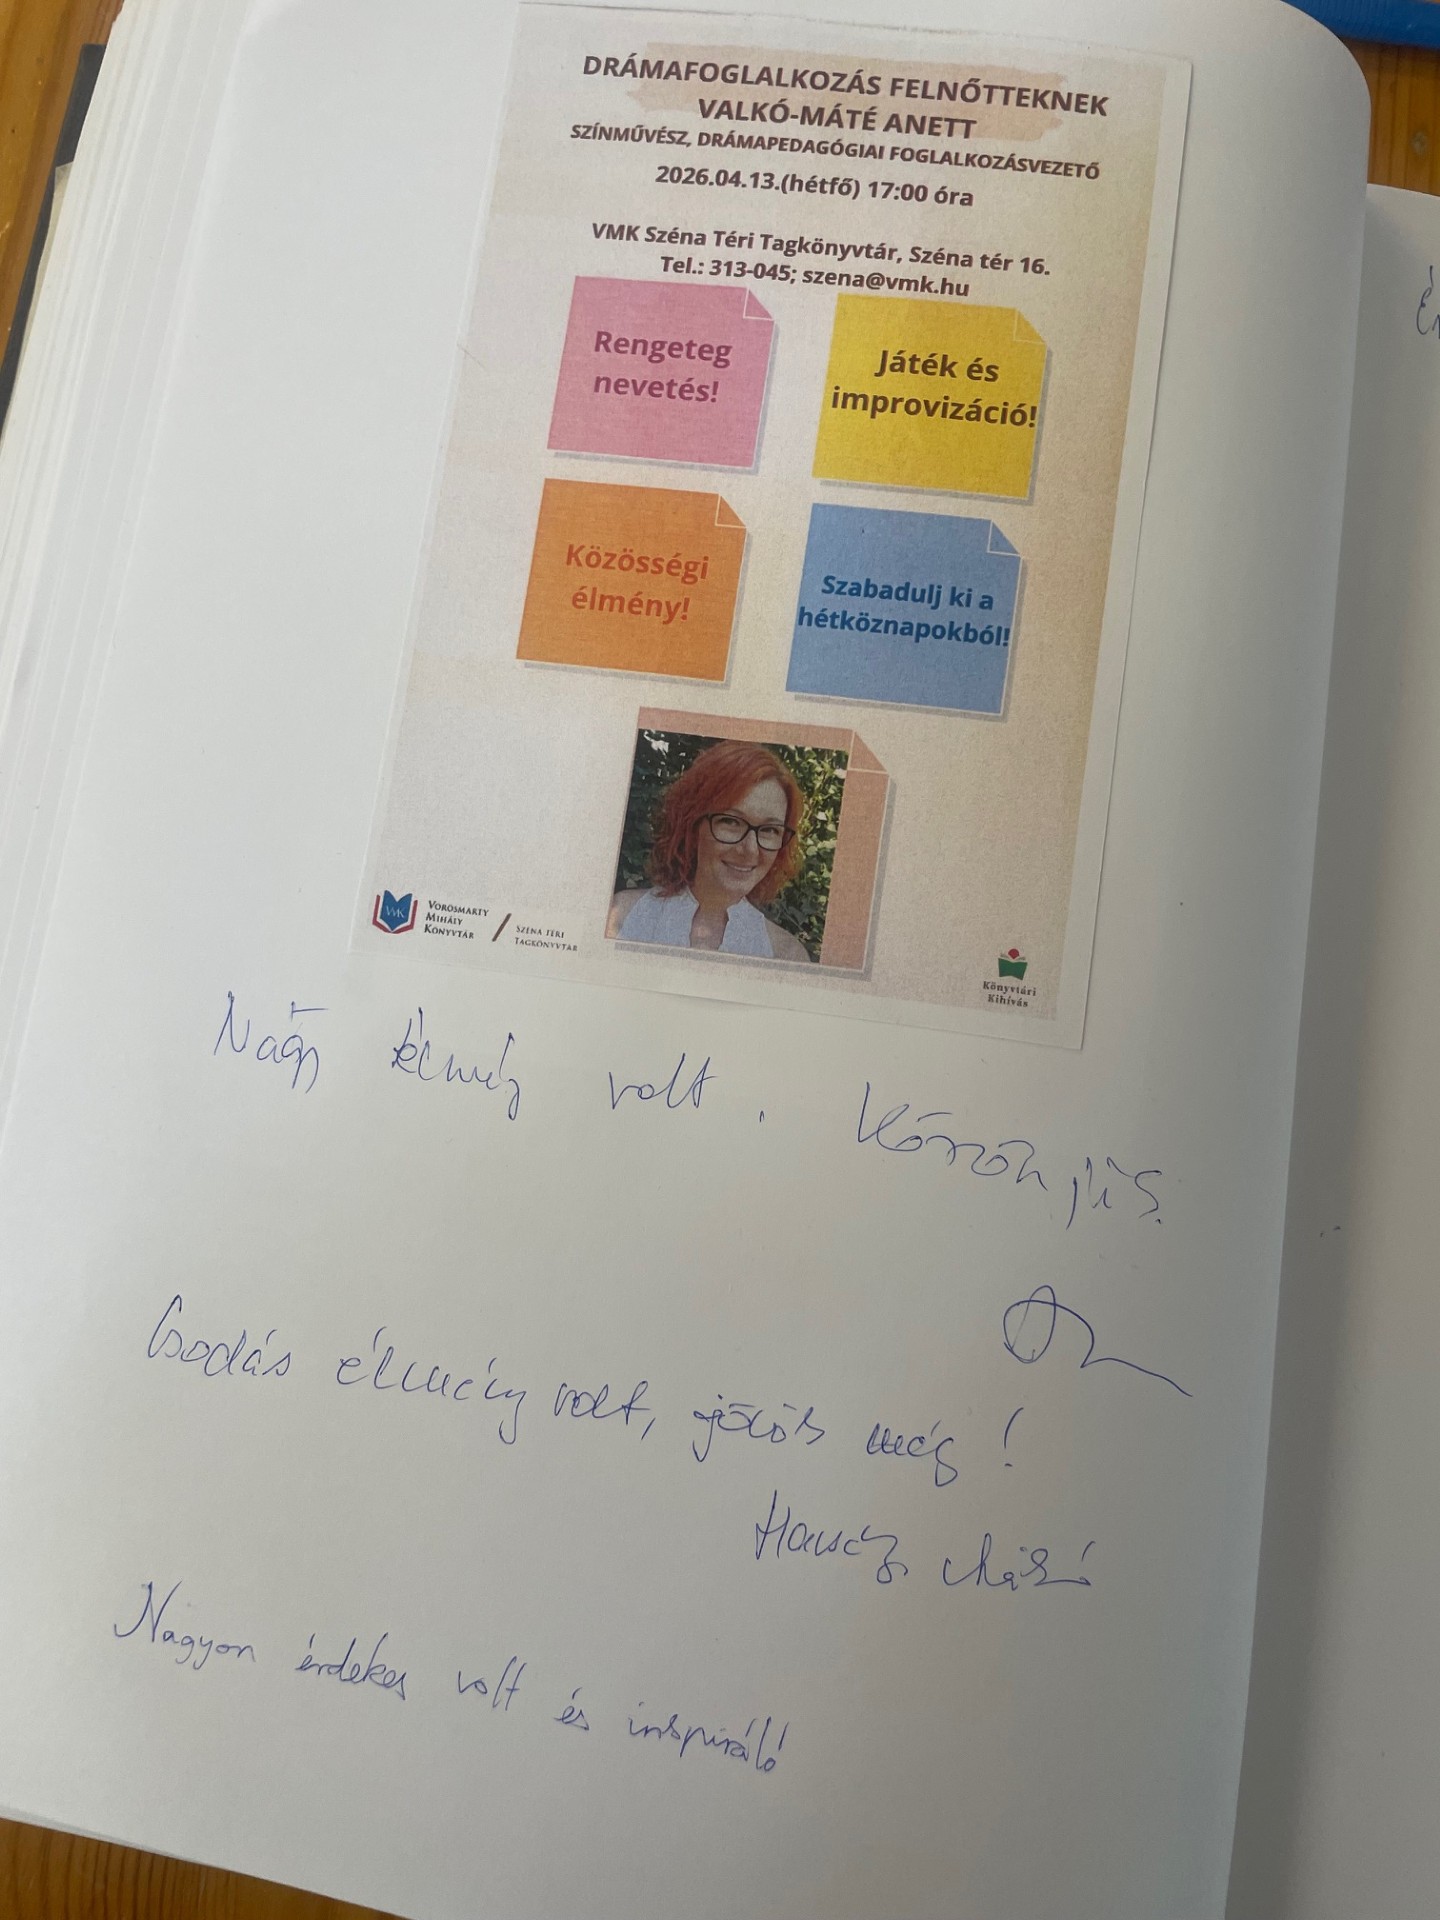 DRÁMAFOGLALKOZÁS FELNŐTTEKNEK
VALKÓ-MÁTÉ ANETT
SZÍNMŰVÉSZ, DRÁMAPEDAGÓGIAI FOGLALKOZÁSVEZETŐ
2026.04.13.(hétfő) 17:00 óra
VMK Széna Téri Tagkönyvtár, Széna tér 16.
Tel.: 313-045; szena@vmk.hu
Rengeteg
nevetés!
Játék és
improvizáció!
Közösségi
élmény!
Szabadulj ki a
hétköznapokból!
VMK
VÖRÖSMARTY
MIHÁLY
KÖNYVTÁR
SZÉNA TÉRI
TAGKÖNYVTÁR
Könyvtári
Kihívás
Nagy élmény volt. Köszönjük.
Csodás élmény volt, jövök még!
Nagyon érdekes volt és inspiráló